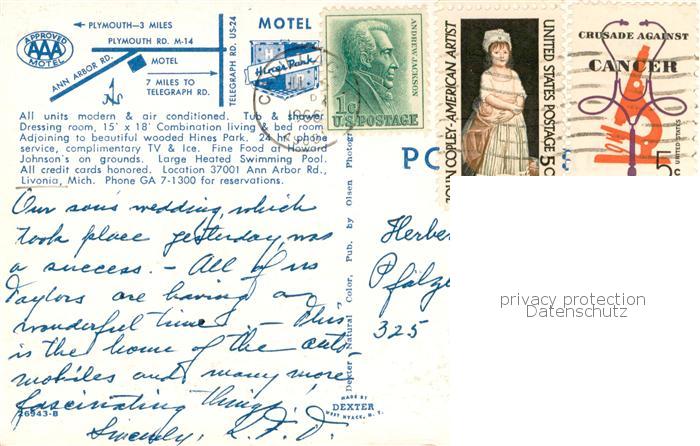 APPROVED
AAA
MOTEL
PLYMOUTH—3 MILES
PLYMOUTH RD. M-14
ANN ARBOR RD.
MOTEL
7 MILES TO
TELEGRAPH RD.
TELEGRAPH RD. US-24
N
MOTEL
Hines Park
All units modern & air conditioned. Tub & shower
Dressing room, 15' x 18' Combination living & bed room.
Adjoining to beautiful wooded Hines Park, 24 hr. phone
service, complimentary TV & Ice. Fine Food at Howard
Johnson's on grounds. Large Heated Swimming Pool.
All credit cards honored. Location 37001 Ann Arbor Rd.,
Livonia, Mich. Phone GA 7-1300 for reservations.
Our sons wedding, which
took place yesterday, was
a success. — All of us
Taylors are having a
wonderful time — This
is the home of the auto-
mobiles and many more
fascinating things.
Sincerely, L.F.D.
26943-B
Dexter Natural Color, Pub. by Olsen Photogr
MADE BY
DEXTER
WEST NYACK, N. Y.
ANDREW JACKSON
1¢
U.S. POSTAGE
JOHN COPLEY·AMERICAN ARTIST
UNITED STATES POSTAGE 5c
CRUSADE AGAINST
CANCER
5¢
UNITED STATES
PO
Herber
Pfälze
325
privacy protection
Datenschutz